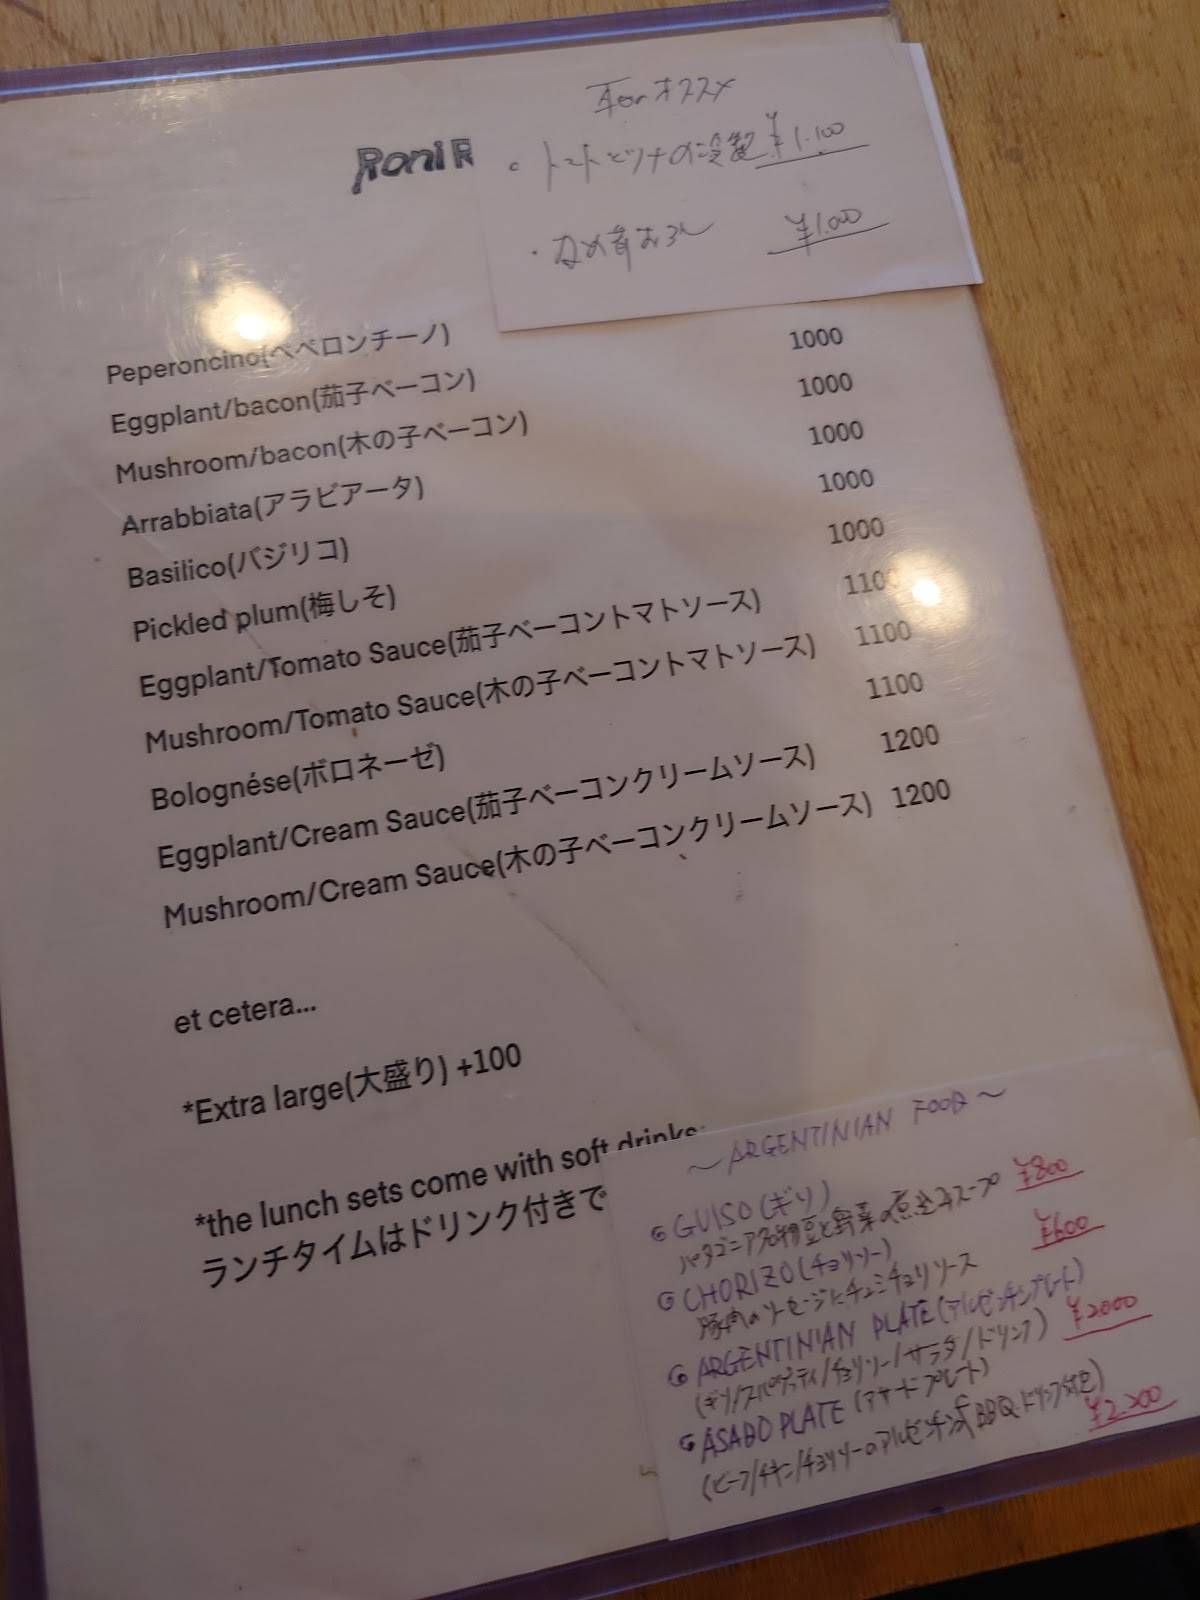 Roni R
オススメ
・トマトとツナの冷製 ¥1.100
・なめ茸おろし ¥1.000
Peperoncino(ペペロンチーノ)
Eggplant/bacon(茄子ベーコン) 1000
Mushroom/bacon(木の子ベーコン) 1000
Arrabbiata(アラビアータ) 1000
Basilico(バジリコ) 1000
Pickled plum(梅しそ) 1000
Eggplant/Tomato Sauce(茄子ベーコントマトソース) 1100
Mushroom/Tomato Sauce(木の子ベーコントマトソース) 1100
Bolognése(ボロネーゼ) 1100
Eggplant/Cream Sauce(茄子ベーコンクリームソース) 1200
Mushroom/Cream Sauce(木の子ベーコンクリームソース) 1200
et cetera...
*Extra large(大盛り) +100
*the lunch sets come with soft drinks
ランチタイムはドリンク付きで
～ARGENTINIAN FOOD～
GUISO(ギソ) ¥800
パタゴニア名物豆と野菜の煮込みスープ
CHORIZO(チョリソー) ¥600
豚肉のソーセージにチュミチュリソース
ARGENTINIAN PLATE(アルゼンチンプレート)
(ギソ/スパゲッティ/チョリソー/サラダ/ドリンク) ¥2000
ASADO PLATE(アサードプレート)
(ビーフ/チキン/チョリソーのアルゼンチン式BBQ.ドリンク付き) ¥2.200